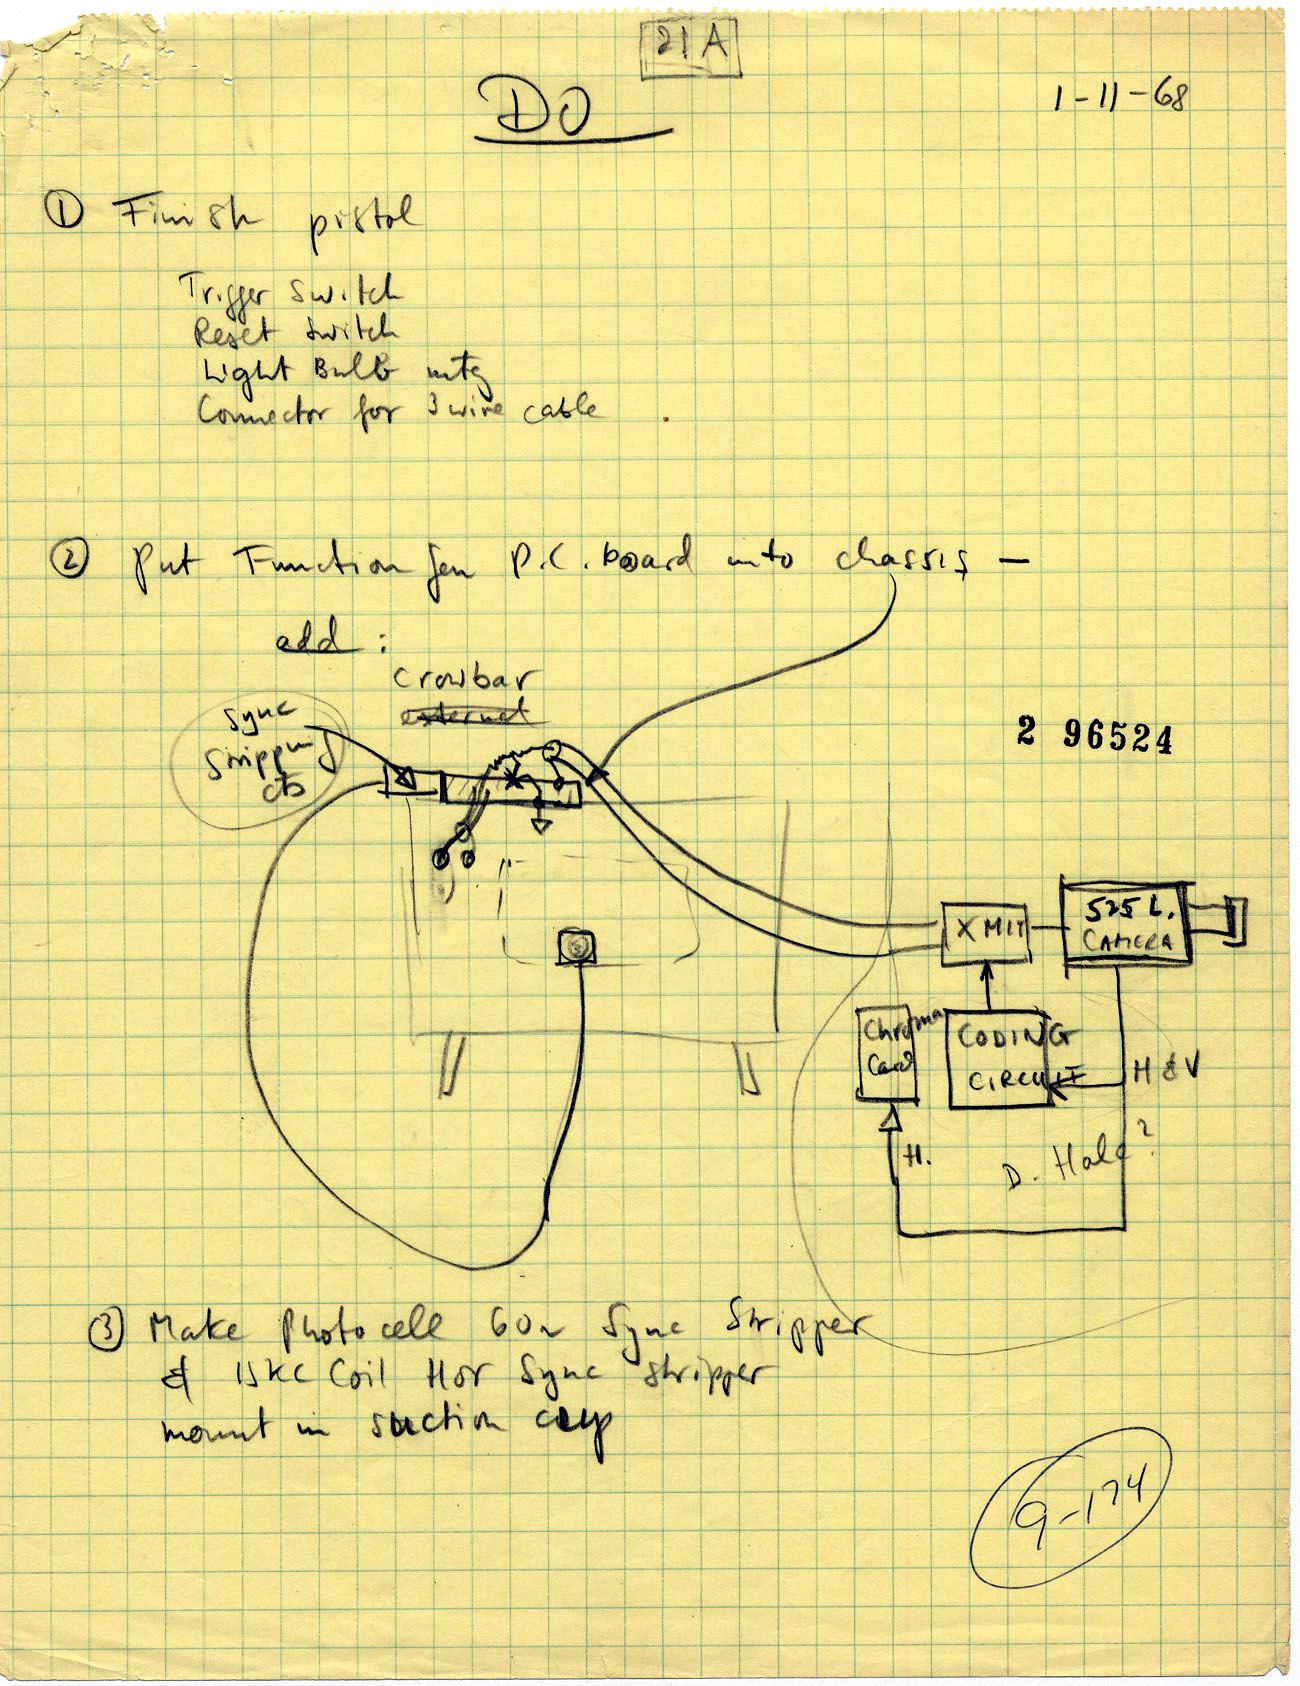 21A
DO
1-11-68
① Finish pistol
Trigger Switch
Reset Switch
Light Bulb mtg
Connector for 3 wire cable
② Put Function Gen P.C. board into chassis —
add:
Crowbar
external
Sync
Stripping
cts
2 96524
XMIT
525 L.
CAMERA
Chroma
Card
CODING
CIRCUIT
H & V
H.
D. Hale?
③ Make Photocell 60~ Sync Stripper
& 15KC Coil Hor Sync stripper
mount in suction cup
9-174